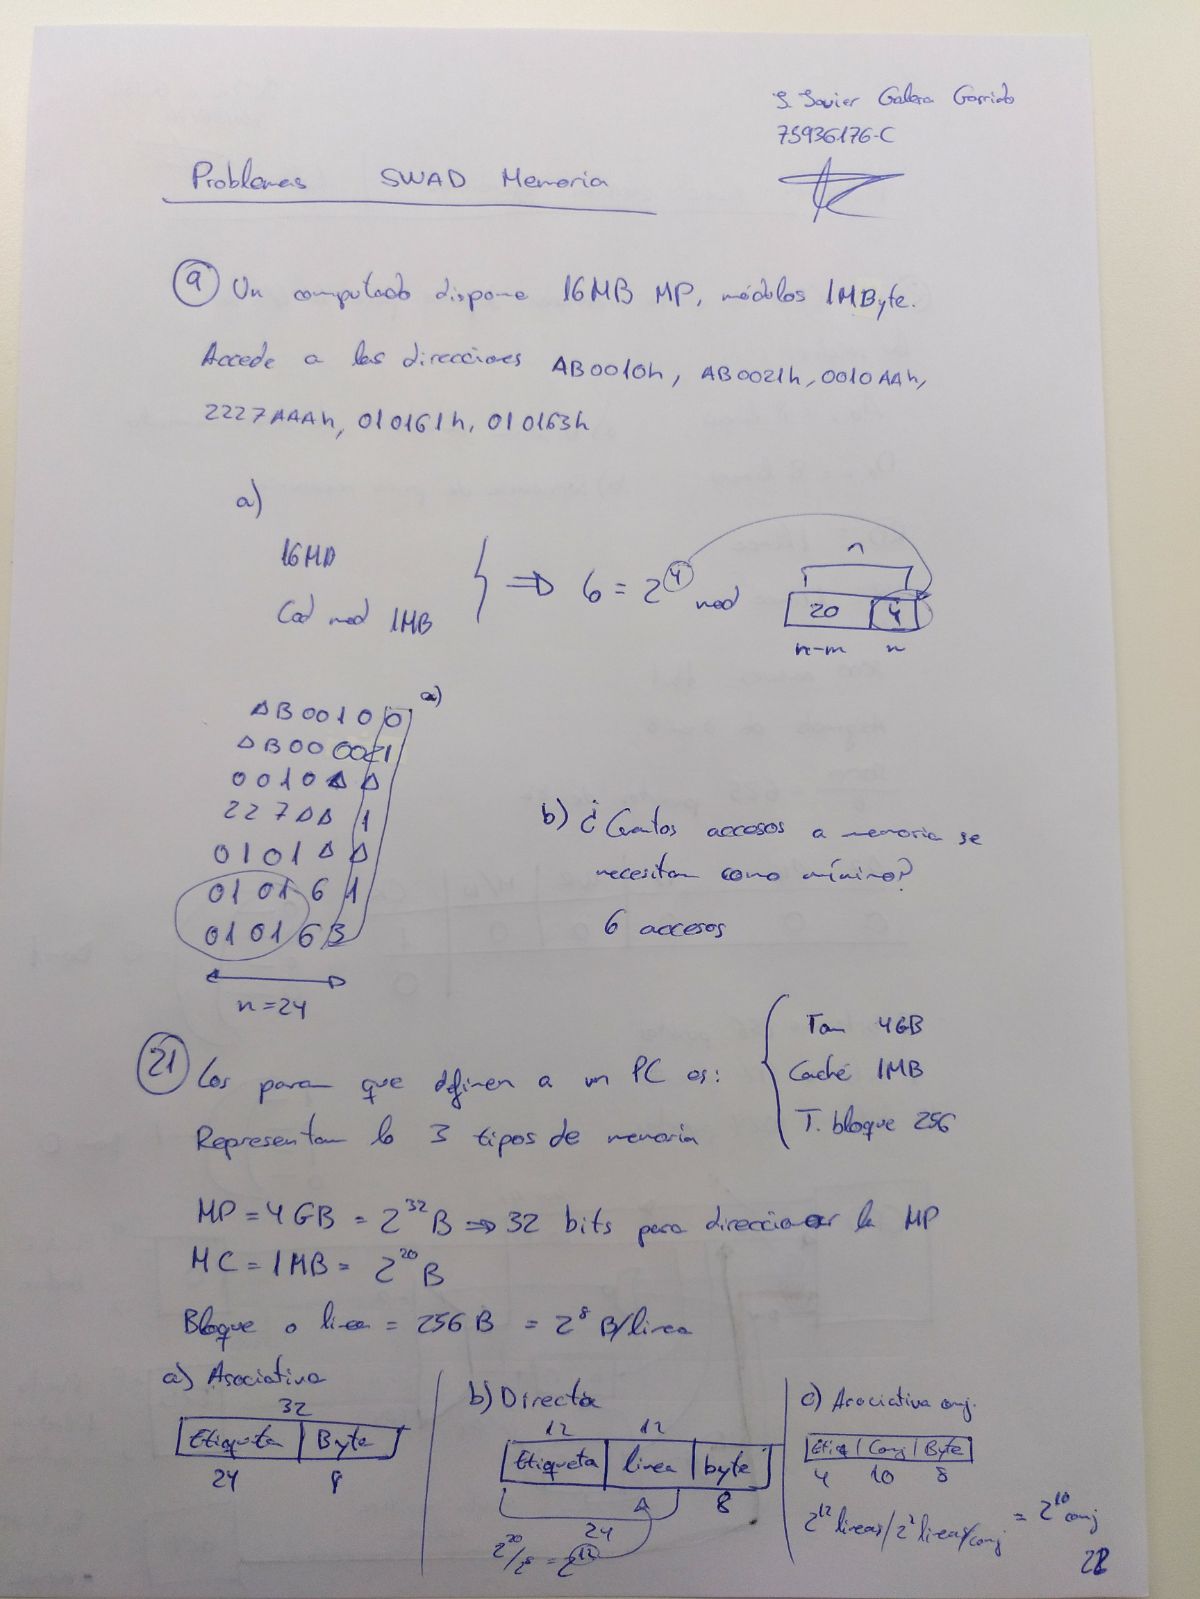 J. Javier Galera Garrido
75936176-C
Problemas SWAD Memoria
9 Un computado dispone 16MB MP, módulos 1MByte.
Accede a las direcciones AB0010h, AB0021h, 0010AAh,
2227AAAh, 010161h, 010163h
a)
16MB
Cad mod 1MB
⇒ 6 = 2^4 mod
n
20 4
n-m n
a)
AB00100
AB000021
0010AA
227AA1
0101AA
010161
010163
n=24
b) ¿Cuantos accesos a memoria se
necesitan como mínimo?
6 accesos
21 Los param que definen a un PC es:
Representam lo 3 tipos de memoria
Tam 4GB
Caché 1MB
T. bloque 256
MP = 4GB = 2^32 B ⇒ 32 bits para direccionar la MP
MC = 1MB = 2^20 B
Bloque o linea = 256 B = 2^8 B/linea
a) Asociativa
32
Etiqueta Byte
24 8
b) Directa
12 12
Etiqueta linea byte
8
24
= 2^12
c) Asociativa conj.
Etiq Conj Byte
4 10 8
2^12 lineas/2^2 lineas/conj = 2^10 conj